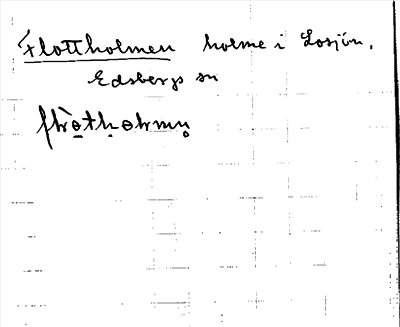 Flottholmen holme i Losjön,
Edsbergs sn